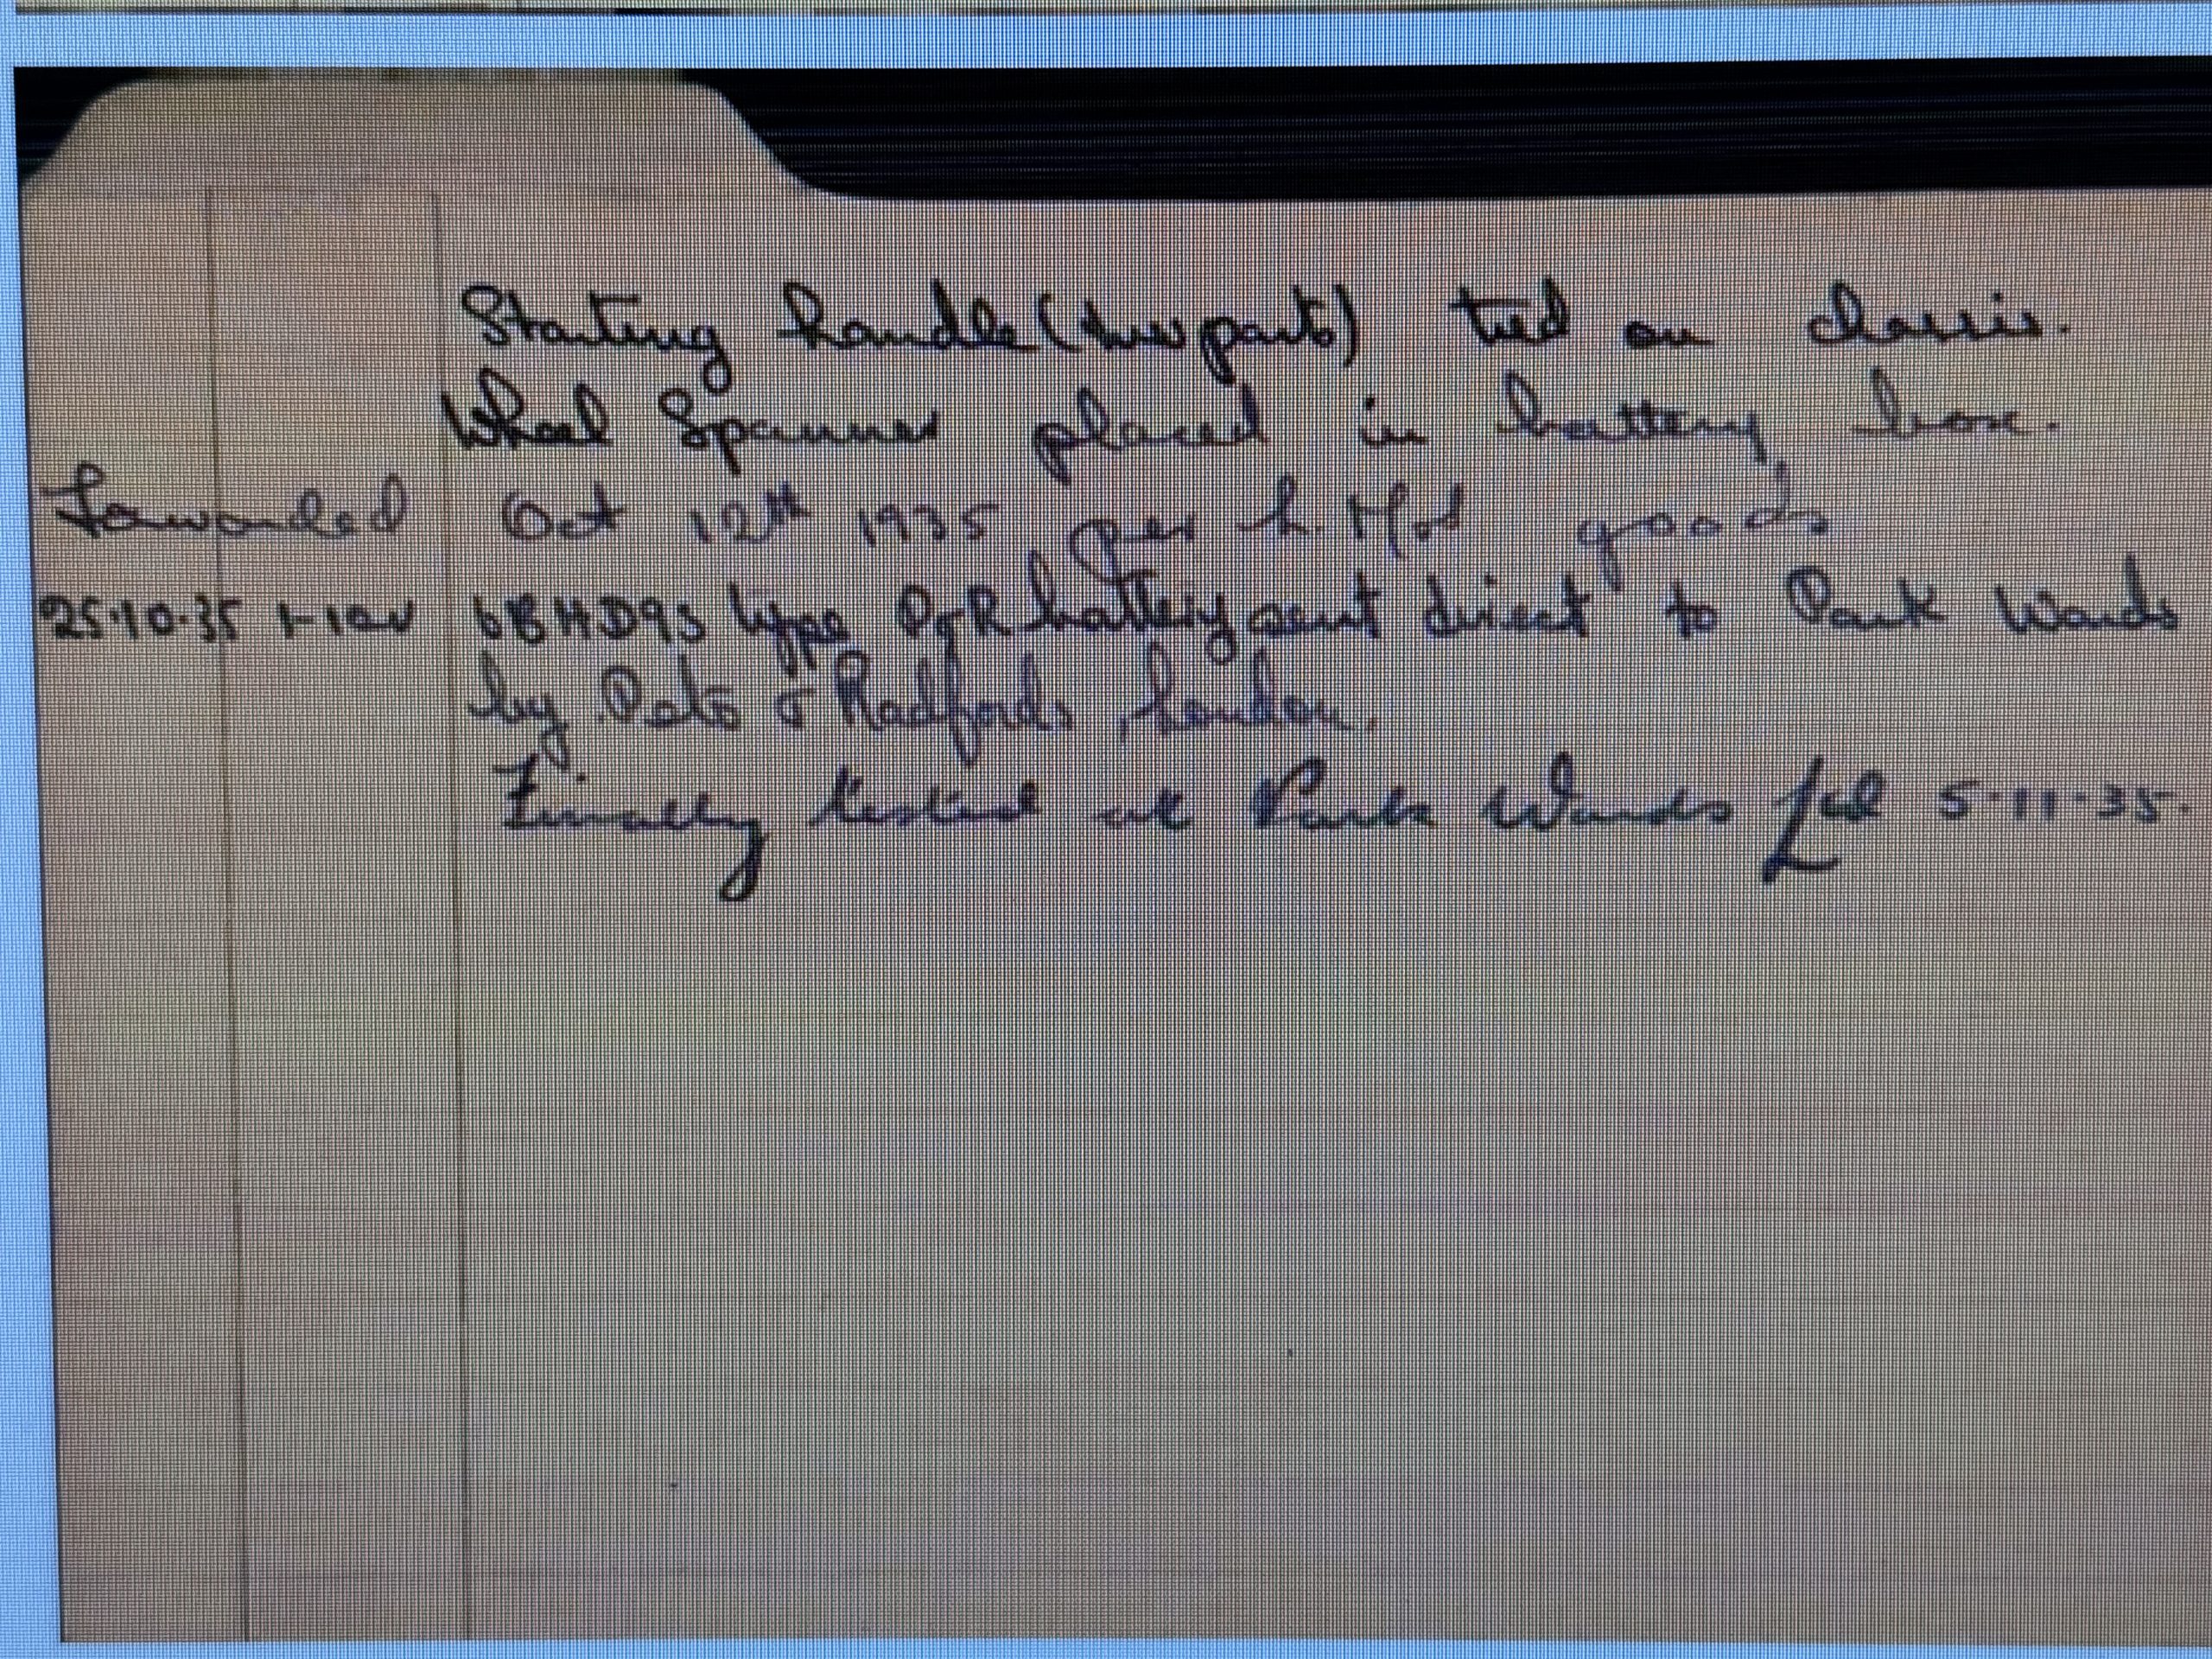 Starting handle (two parts) tied on chassis.
Wheel Spanner placed in battery box.
Forwarded Oct 12th 1935 per goods
25.10.35 1-12v 6BHD9S type P&R battery sent direct to Park Wards
by Peto & Radfords, London.
Finally tested at Park Wards 5.11.35.